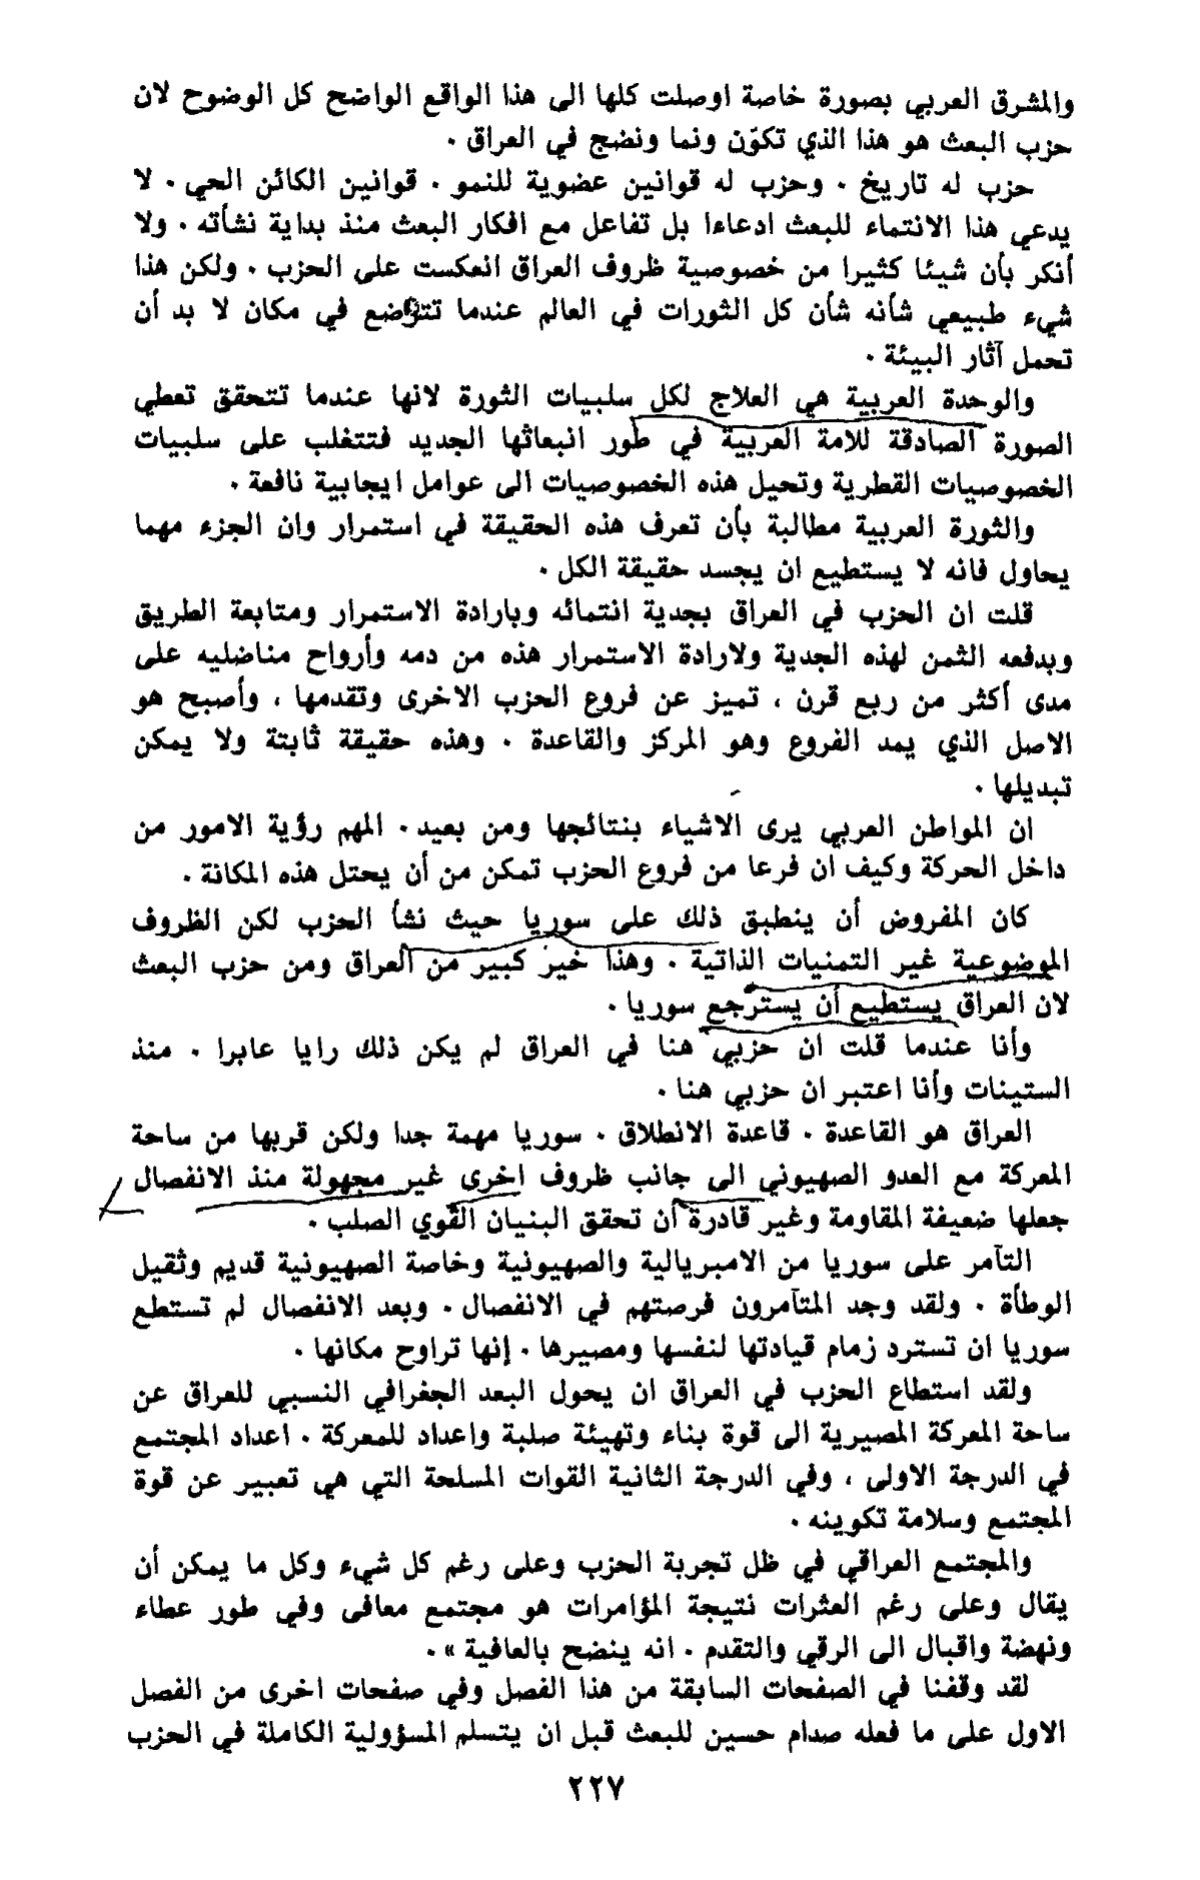 والمشرق العربي بصورة خاصة اوصلت كلها الى هذا الواقع الواضح كل الوضوح لان
حزب البعث هو هذا الذي تكوّن ونما ونضج في العراق .
حزب له تاريخ . وحزب له قوانين عضوية للنمو . قوانين الكائن الحي . لا
يدعي هذا الانتماء للبعث ادعاءا بل تفاعل مع افكار البعث منذ بداية نشأته . ولا
أنكر بأن شيئا كثيرا من خصوصية ظروف العراق انعكست على الحزب . ولكن هذا
شيء طبيعي شأنه شأن كل الثورات في العالم عندما تتوضع في مكان لا بد أن
تحمل آثار البيئة .
والوحدة العربية هي العلاج لكل سلبيات الثورة لانها عندما تتحقق تعطي
الصورة الصادقة للامة العربية في طور انبعاثها الجديد فتتغلب على سلبيات
الخصوصيات القطرية وتحيل هذه الخصوصيات الى عوامل ايجابية نافعة .
والثورة العربية مطالبة بأن تعرف هذه الحقيقة في استمرار وان الجزء مهما
يحاول فانه لا يستطيع ان يجسد حقيقة الكل .
قلت ان الحزب في العراق بجدية انتمائه وبارادة الاستمرار ومتابعة الطريق
وبدفعه الثمن لهذه الجدية ولارادة الاستمرار هذه من دمه وأرواح مناضليه على
مدى أكثر من ربع قرن ، تميز عن فروع الحزب الاخرى وتقدمها ، وأصبح هو
الاصل الذي يمد الفروع وهو المركز والقاعدة . وهذه حقيقة ثابتة ولا يمكن
تبديلها .
ان المواطن العربي يرى الاشياء بنتائجها ومن بعيد . المهم رؤية الامور من
داخل الحركة وكيف ان فرعا من فروع الحزب تمكن من أن يحتل هذه المكانة .
كان المفروض أن ينطبق ذلك على سوريا حيث نشأ الحزب لكن الظروف
الموضوعية غير التمنيات الذاتية . وهذا خير كبير من العراق ومن حزب البعث
لان العراق يستطيع أن يسترجع سوريا .
وأنا عندما قلت ان حزبي هنا في العراق لم يكن ذلك رايا عابرا . منذ
الستينات وأنا اعتبر ان حزبي هنا .
العراق هو القاعدة . قاعدة الانطلاق . سوريا مهمة جدا ولكن قربها من ساحة
المعركة مع العدو الصهيوني الى جانب ظروف اخرى غير مجهولة منذ الانفصال
جعلها ضعيفة المقاومة وغير قادرة أن تحقق البنيان القوي الصلب .
التآمر على سوريا من الامبريالية والصهيونية وخاصة الصهيونية قديم وثقيل
الوطأة . ولقد وجد المتآمرون فرصتهم في الانفصال . وبعد الانفصال لم تستطع
سوريا ان تسترد زمام قيادتها لنفسها ومصيرها . إنها تراوح مكانها .
ولقد استطاع الحزب في العراق ان يحول البعد الجغرافي النسبي للعراق عن
ساحة المعركة المصيرية الى قوة بناء وتهيئة صلبة واعداد للمعركة . اعداد المجتمع
في الدرجة الاولى ، وفي الدرجة الثانية القوات المسلحة التي هي تعبير عن قوة
المجتمع وسلامة تكوينه .
والمجتمع العراقي في ظل تجربة الحزب وعلى رغم كل شيء وكل ما يمكن أن
يقال وعلى رغم العثرات نتيجة المؤامرات هو مجتمع معافى وفي طور عطاء
ونهضة واقبال الى الرقي والتقدم . انه ينضح بالعافية » .
لقد وقفنا في الصفحات السابقة من هذا الفصل وفي صفحات اخرى من الفصل
الاول على ما فعله صدام حسين للبعث قبل ان يتسلم المسؤولية الكاملة في الحزب
٢٢٧